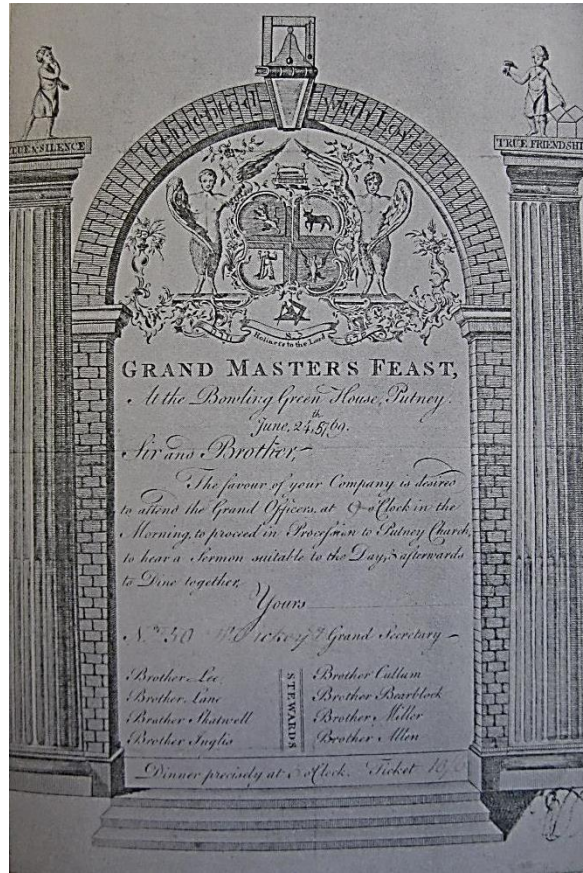 Cemented with Love
TUE & SILENCE
TRUE FRIENDSHIP
Holiness to the Lord
GRAND MASTERS FEAST,
At the Bowling Green House, Putney.
June, 24th, 5769.
Sir and Brother,
The favour of your Company is desired
to attend the Grand Officers, at 9 o'Clock in the
Morning, to proceed in Procession to Putney Church,
to hear a Sermon suitable to the Day, & afterwards
to Dine together,
Yours
No. 30 Dickey Grand Secretary
STEWARDS
Brother Lee,
Brother Lane
Brother Shatwell
Brother Inglis
Brother Cullum
Brother Bearblock
Brother Miller
Brother Allen
Dinner precisely at 3 o'Clock. Ticket 10/6